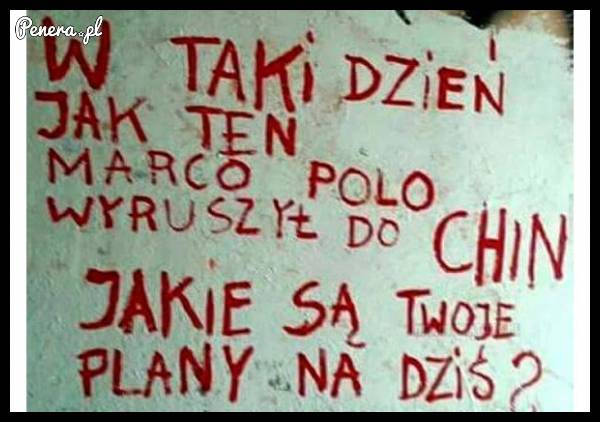 Penera.pl
W TAKi DZiEŃ
JAK TEN
MARCO POLO
WYRUSZYŁ DO CHIN
JAKIE SĄ TWOJE
PLANY NA DZiŚ?